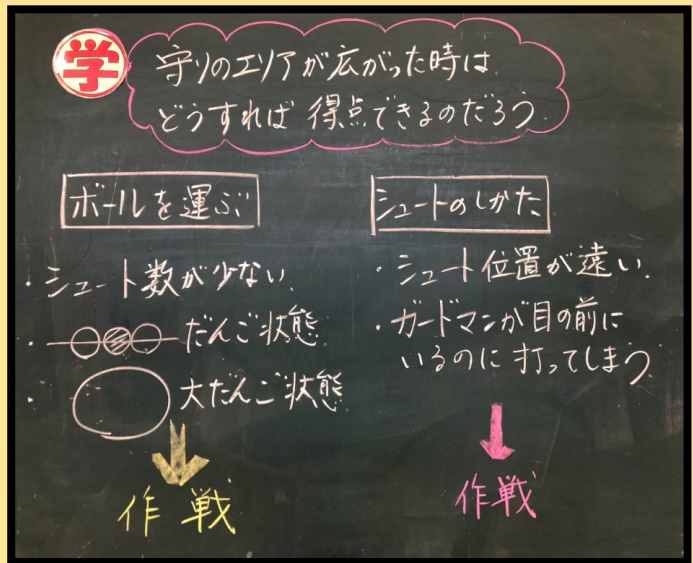 学
守りのエリアが広がった時は
どうすれば 得点できるのだろう
ボールを運ぶ
・シュート数が少ない.
・だんご状態
・大だんご状態
作戦
シュートのしかた
・シュート位置が遠い.
・ガードマンが目の前に
いるのに打ってしまう
作戦